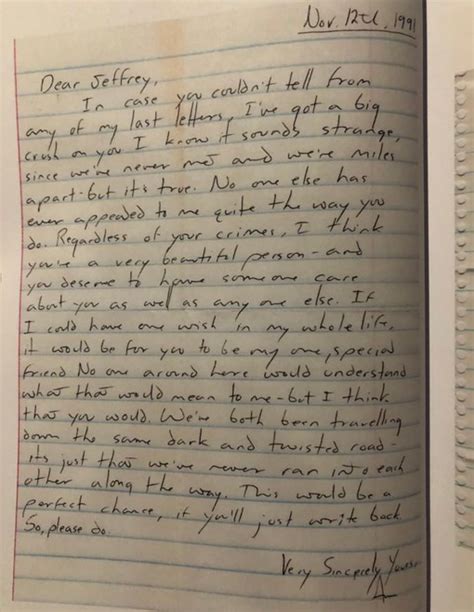 Nov. 12th, 1991
Dear Jeffrey,
In case you couldn't tell from
any of my last letters, I've got a big
crush on you I know it sounds strange,
since we've never met and we're miles
apart-but it's true. No one else has
ever appealed to me quite the way you
do. Regardless of your crimes, I think
you're a very beautiful person-and
you deserve to have someone care
about you as well as any one else. If
I could have one wish in my whole life,
it would be for you to be my one, special
friend No one around here would understand
what that would mean to me-but I think
that you would. We've both been travelling
down the same dark and twisted road-
its just that we've never ran into each
other along the way. This would be a
perfect chance, if you'll just write back
So, please do.
Very Sincerely Yours,